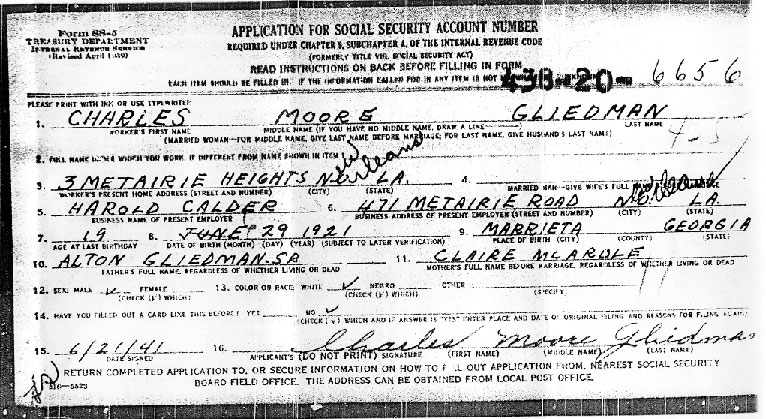 Form SS-5
TREASURY DEPARTMENT
INTERNAL REVENUE SERVICE
(Revised April 1940)
APPLICATION FOR SOCIAL SECURITY ACCOUNT NUMBER
REQUIRED UNDER CHAPTER 9, SUBCHAPTER A, OF THE INTERNAL REVENUE CODE
(FORMERLY TITLE VIII, SOCIAL SECURITY ACT)
READ INSTRUCTIONS ON BACK BEFORE FILLING IN FORM
EACH ITEM SHOULD BE FILLED IN. IF THE INFORMATION CALLED FOR IN ANY ITEM IS NOT
438-20-6656
PLEASE PRINT WITH INK OR USE TYPEWRITER
1. CHARLES MOORE GLIEDMAN
WORKER'S FIRST NAME MIDDLE NAME (IF YOU HAVE NO MIDDLE NAME, DRAW A LINE LAST NAME
(MARRIED WOMAN—FOR MIDDLE NAME, GIVE LAST NAME BEFORE MARRIAGE; FOR LAST NAME, GIVE HUSBAND'S LAST NAME)
2. FULL NAME UNDER WHICH YOU WORK, IF DIFFERENT FROM NAME SHOWN IN ITEM 1
3. 3 METAIRIE HEIGHTS N. Orleans LA. 4.
WORKER'S PRESENT HOME ADDRESS (STREET AND NUMBER) (CITY) (STATE) MARRIED MAN—GIVE WIFE'S FULL
5. HAROLD CALDER 6. 471 METAIRIE ROAD LA
BUSINESS NAME OF PRESENT EMPLOYER BUSINESS ADDRESS OF PRESENT EMPLOYER (STREET AND NUMBER) (CITY) (STATE)
7. 19 8. JUNE 29 1921 9. MARRIETA GEORGIA
AGE AT LAST BIRTHDAY DATE OF BIRTH (MONTH) (DAY) (YEAR) (SUBJECT TO LATER VERIFICATION) PLACE OF BIRTH (CITY) (COUNTY) (STATE)
10. ALTON GLIEDMAN SR 11. CLAIRE MCARDLE
FATHER'S FULL NAME, REGARDLESS OF WHETHER LIVING OR DEAD MOTHER'S FULL NAME BEFORE MARRIAGE, REGARDLESS OF WHETHER LIVING OR DEAD
12. SEX: MALE ✓ FEMALE 13. COLOR OR RACE: WHITE ✓ NEGRO OTHER
(CHECK (✓) WHICH) (CHECK (✓) WHICH) (SPECIFY)
14. HAVE YOU FILLED OUT A CARD LIKE THIS BEFORE? YES NO ✓
(CHECK (✓) WHICH AND IF ANSWER IS "YES" ENTER PLACE AND DATE OF ORIGINAL FILING AND REASONS FOR FILING AGAIN)
15. 6/21/41 16. Charles Moore Gliedman
DATE SIGNED APPLICANT'S (DO NOT PRINT) SIGNATURE (FIRST NAME) (MIDDLE NAME) (LAST NAME)
RETURN COMPLETED APPLICATION TO, OR SECURE INFORMATION ON HOW TO FILL OUT APPLICATION FROM, NEAREST SOCIAL SECURITY
BOARD FIELD OFFICE. THE ADDRESS CAN BE OBTAINED FROM LOCAL POST OFFICE.